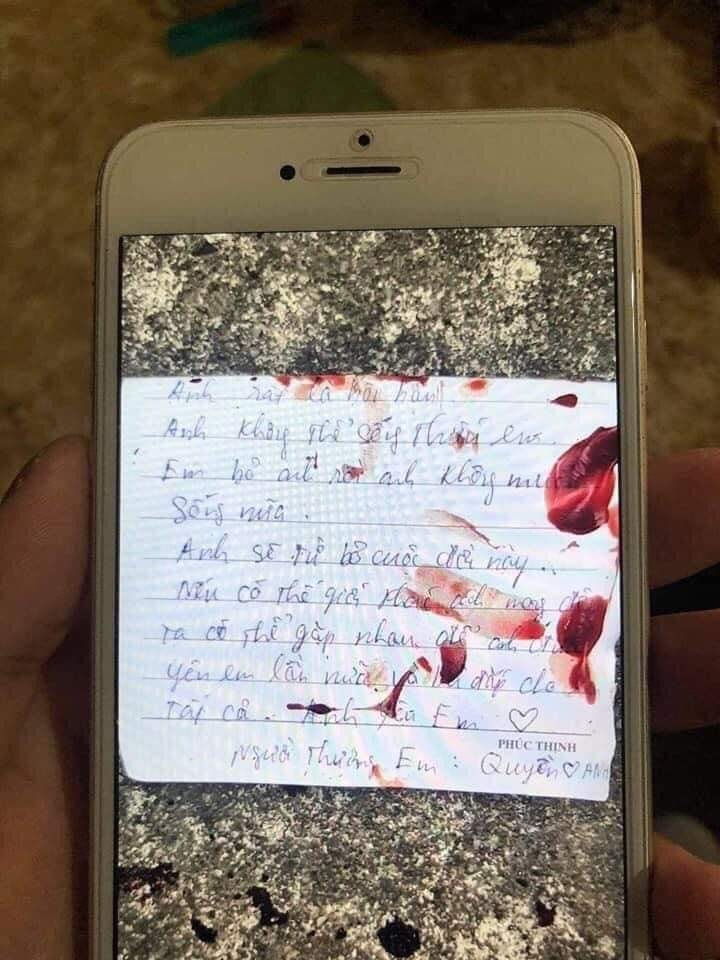 Anh rất là hối hận!
Anh không thể sống thiếu em.
Em bỏ anh rồi anh không
Sống nữa.
Anh sẽ từ bỏ cuộc đời này..
Nếu có thế giới khác anh mong
ta có thể gặp nhau để anh
yêu em lần nữa. và đắp cho
tất cả. Anh yêu Em ♡
PHÚC THỊNH
Người thương Em: Quyền ♡ ANH